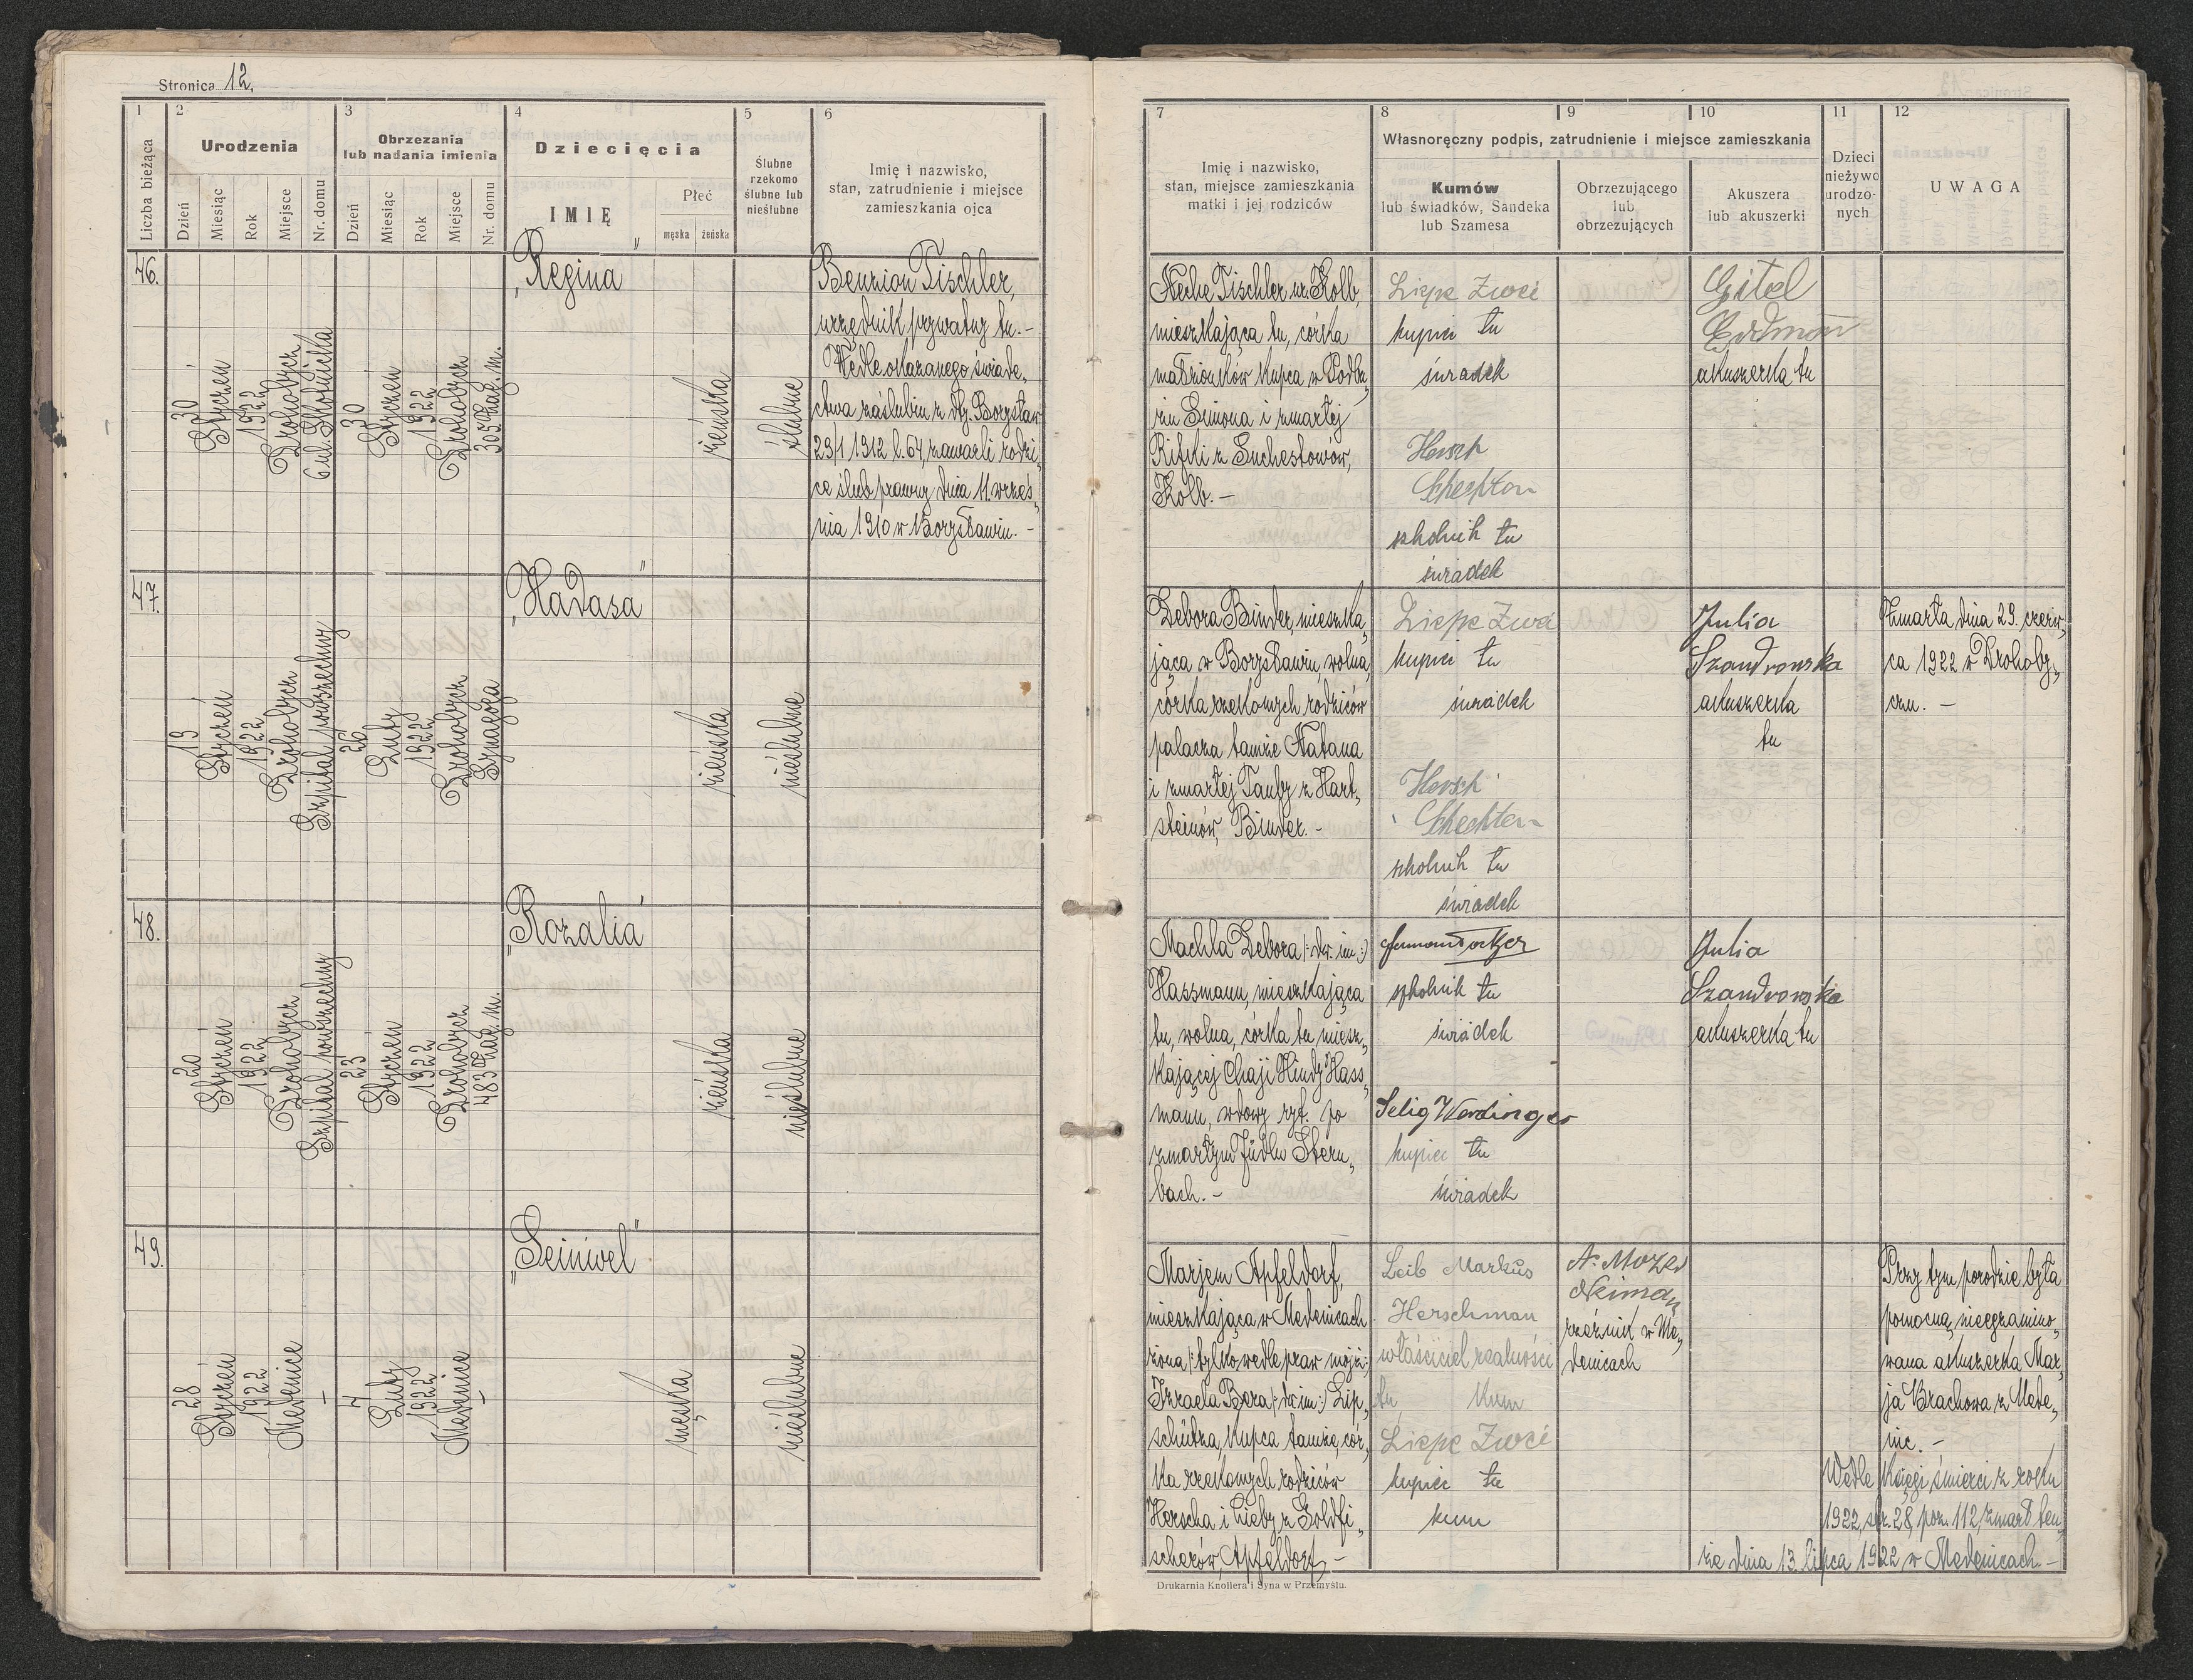 Stronica 12.
1
2
3
4
5
6
Liczba bieżąca
Urodzenia
Obrzezania
lub nadania imienia
Dziecięcia
Ślubne
rzekomo
ślubne lub
nieślubne
Imię i nazwisko,
stan, zatrudnienie i miejsce
zamieszkania ojca
Dzień
Miesiąc
Rok
Miejsce
Nr. domu
Dzień
Miesiąc
Rok
Miejsce
Nr. domu
IMIĘ
Płeć
męska
żeńska
7
8
9
10
11
12
Imię i nazwisko,
stan, miejsce zamieszkania
matki i jej rodziców
Własnoręczny podpis, zatrudnienie i miejsce zamieszkania
Kumów
lub świadków, Sandeka
lub Szamesa
Obrzezującego
lub
obrzezujących
Akuszera
lub akuszerki
Dzieci
nieżywo
urodzo-
nych
UWAGA
46.
30
Styczeń
1922
Drohobycz
6 ul. Słotnicka
30
Styczeń
1922
Drohobycz
305 zag. m.
„Regina"
żeńska
ślubne
Benzion Tischler,
urzędnik prywatny tu. -
Wedle okazanego świade„
ctwa zaślubin z dtg. Borysław
29/1 1912 l. 64, zawarli rodzi„
ce ślub prawny dnia 11. wrześ„
nia 1910 w Borysławiu. -
Neche Tischler ur. Kolb,
mieszkająca tu, córka
małżonków kupca w Podbu„
żu Simona i zmarłej
Rifki z Suchestowów,
Kolb. -
Liepe Zwei
kupiec tu
świadek
Hersch
Schechter
szkolnik tu
świadek
Gitel
Erdman
akuszerka tu
47.
19
Styczeń
1922
Drohobycz
Szpital powszechny
26
Luty
1922
Drohobycz
Synagoga
„Hadasa"
żeńska
nieślubne
Debora Binder, mieszka„
jąca w Borysławiu, wolna,
córka rzekomych rodziców
palacza tamże Natana
i zmarłej Tauby z Hart„
steinów, Binder. -
Liepe Zwei
kupiec tu
świadek
Hersch
Schechter
szkolnik tu
świadek
Julia
Szandrowska
akuszerka
tu
Zmarła dnia 29. czerw„
ca 1922 w Drohoby„
czu. -
48.
20
Styczeń
1922
Drohobycz
Szpital powszechny
23
Styczeń
1922
Drohobycz
483 zag. m.
„Rozalia"
żeńska
nieślubne
Machla Debora /: dw. im :/
Hassmann, mieszkająca
tu, wolna, córka tu miesz„
kającej Chaji Hindy Hass„
mann, wdowy ryt. po
zmarłym Jüdlu Stern„
bach. -
szkolnik tu
świadek
Selig Werdinger
kupiec tu
świadek
Julia
Szandrowska
akuszerka tu
49.
28
Styczeń
1922
Medenice
-
4
Luty
1922
Medenice
-
„Seinwel"
męska
nieślubne
Marjem Apfeldorf,
mieszkająca w Medenicach
żona /: tylko wedle praw mojż :/
Izraela Bera /: dw im :/ Lip„
schütza, kupca tamże, cór„
ka rzekomych rodziców
Herscha i Lieby z Goldfi„
scherów, Apfeldorf. -
Leib Markus
Herschman
właściciel realności
tu, kum
Liepe Zwei
kupiec tu
kum
A. Mozes
Neiman
rzeźnik w Me„
denicach
Przy tym porodzie była
pomocną nieegzamino„
wana akuszerka Mar„
ja Brachowa z Mede„
nic. -
Wedle księgi śmierci z roku
1922, str. 28, poz. 112, zmarł ten„
że dnia 13. lipca 1922 w Medenicach. -
Drukarnia Knollera i Syna w Przemyślu.